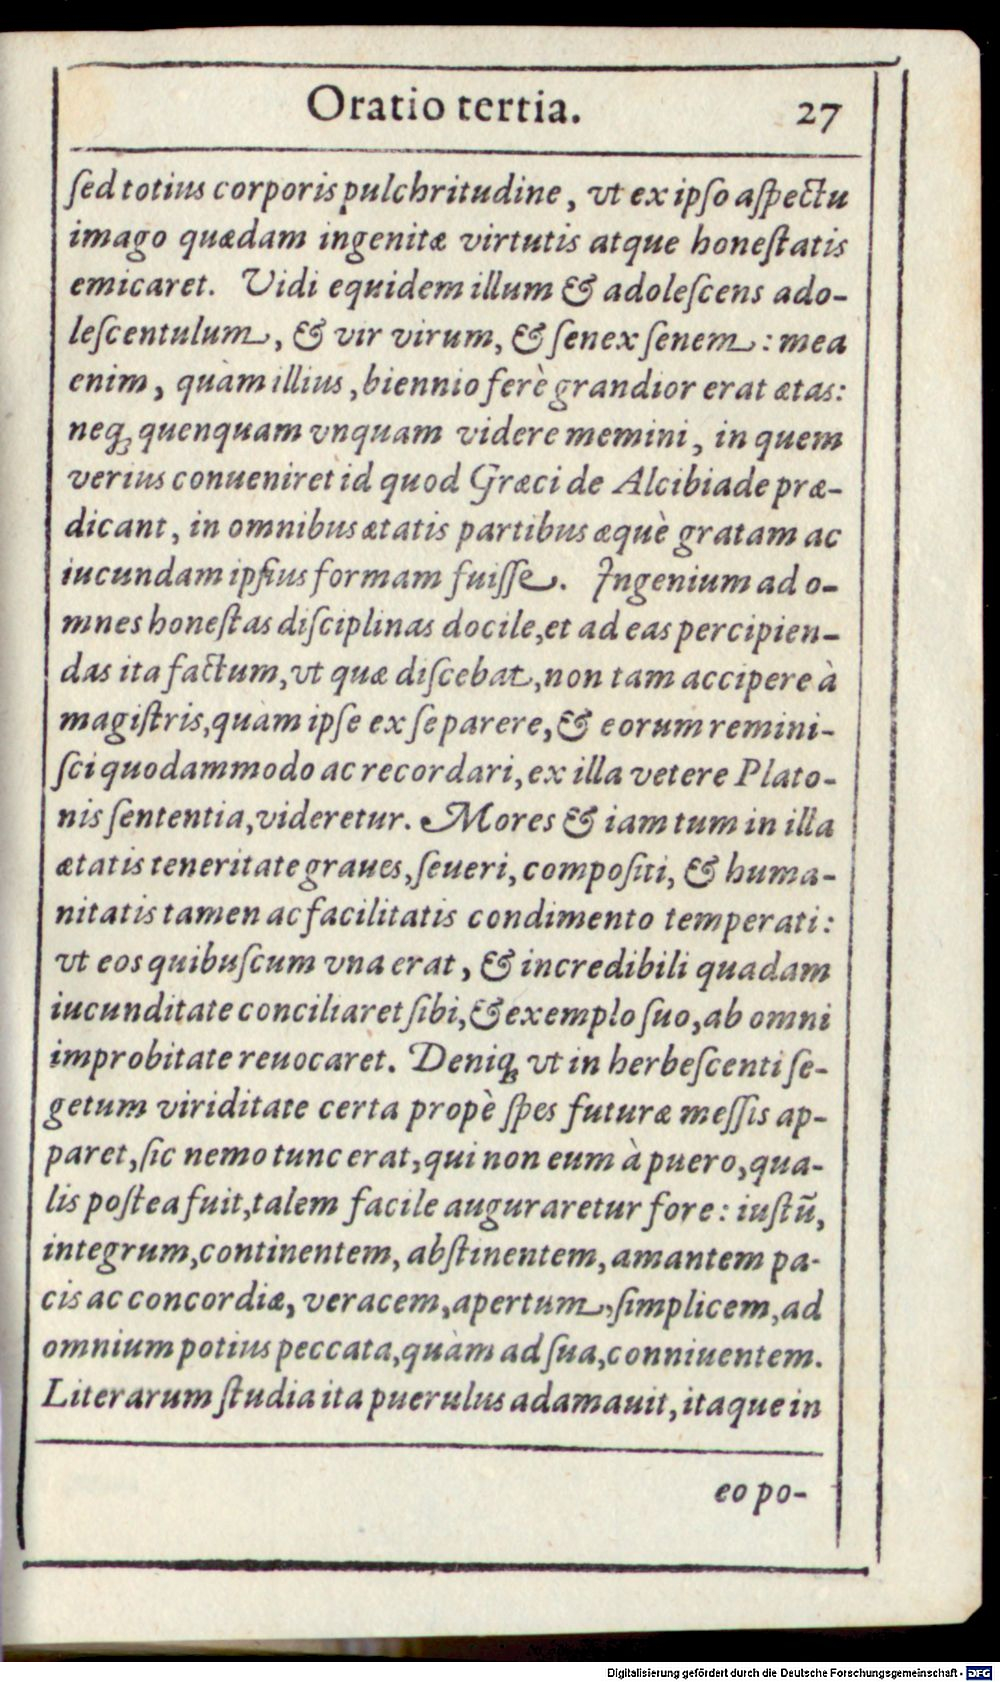 Oratio tertia. 27
ſed totius corporis pulchritudine, vt ex ipſo aſpectu
imago quædam ingenitæ virtutis atque honeſtatis
emicaret. Vidi equidem illum & adoleſcens ado-
leſcentulum, & vir virum, & ſenex ſenem: mea
enim, quàm illius, biennio ferè grandior erat ætas:
neq́; quenquam vnquam videre memini, in quem
verius conueniret id quod Græci de Alcibiade præ-
dicant, in omnibus ætatis partibus æquè gratam ac
iucundam ipſius formam fuiſſe. Ingenium ad o-
mnes honeſtas diſciplinas docile, et ad eas percipien-
das ita factum, vt quæ diſcebat, non tam accipere à
magiſtris, quàm ipſe ex ſe parere, & eorum remini-
ſci quodammodo ac recordari, ex illa vetere Plato-
nis ſententia, videretur. Mores & iam tum in illa
ætatis teneritate graues, ſeueri, compoſiti, & huma-
nitatis tamen ac facilitatis condimento temperati:
vt eos quibuſcum vna erat, & incredibili quadam
iucunditate conciliaret ſibi, & exemplo ſuo, ab omni
improbitate reuocaret. Deniq; vt in herbeſcenti ſe-
getum viriditate certa propè ſpes futuræ meſſis ap-
paret, ſic nemo tunc erat, qui non eum à puero, qua-
lis poſtea fuit, talem facile auguraretur fore: iuſtū,
integrum, continentem, abſtinentem, amantem pa-
cis ac concordiæ, veracem, apertum, ſimplicem, ad
omnium potius peccata, quàm ad ſua, conniuentem.
Literarum ſtudia ita puerulus adamauit, itaque in
eo po-
Digitalisierung gefördert durch die Deutsche Forschungsgemeinschaft - DFG